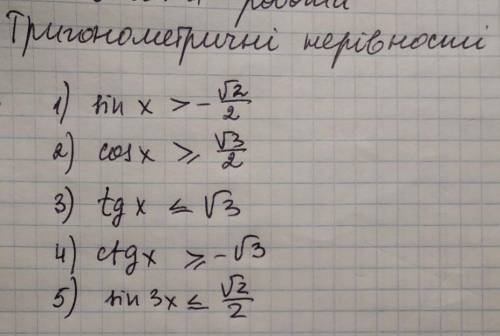 роботи
Тригонометричні нерівності
1) sin x > -√2/2
2) cos x ⩾ √3/2
3) tg x ≤ √3
4) ctg x ⩾ -√3
5) sin 3x ≤ √2/2